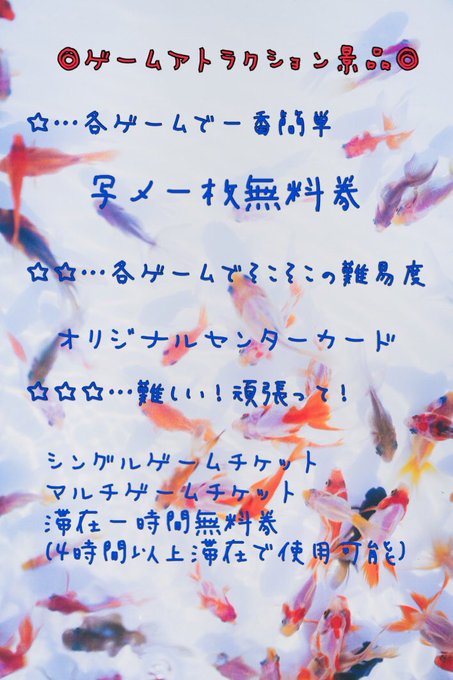 ◎ゲームアトラクション景品◎
☆…各ゲームで一番簡単
写メ一枚無料券
☆☆…各ゲームでそこそこの難易度
オリジナルセンターカード
☆☆☆…難しい！頑張って！
シングルゲームチケット
マルチゲームチケット
滞在一時間無料券
(4時間以上滞在で使用可能)